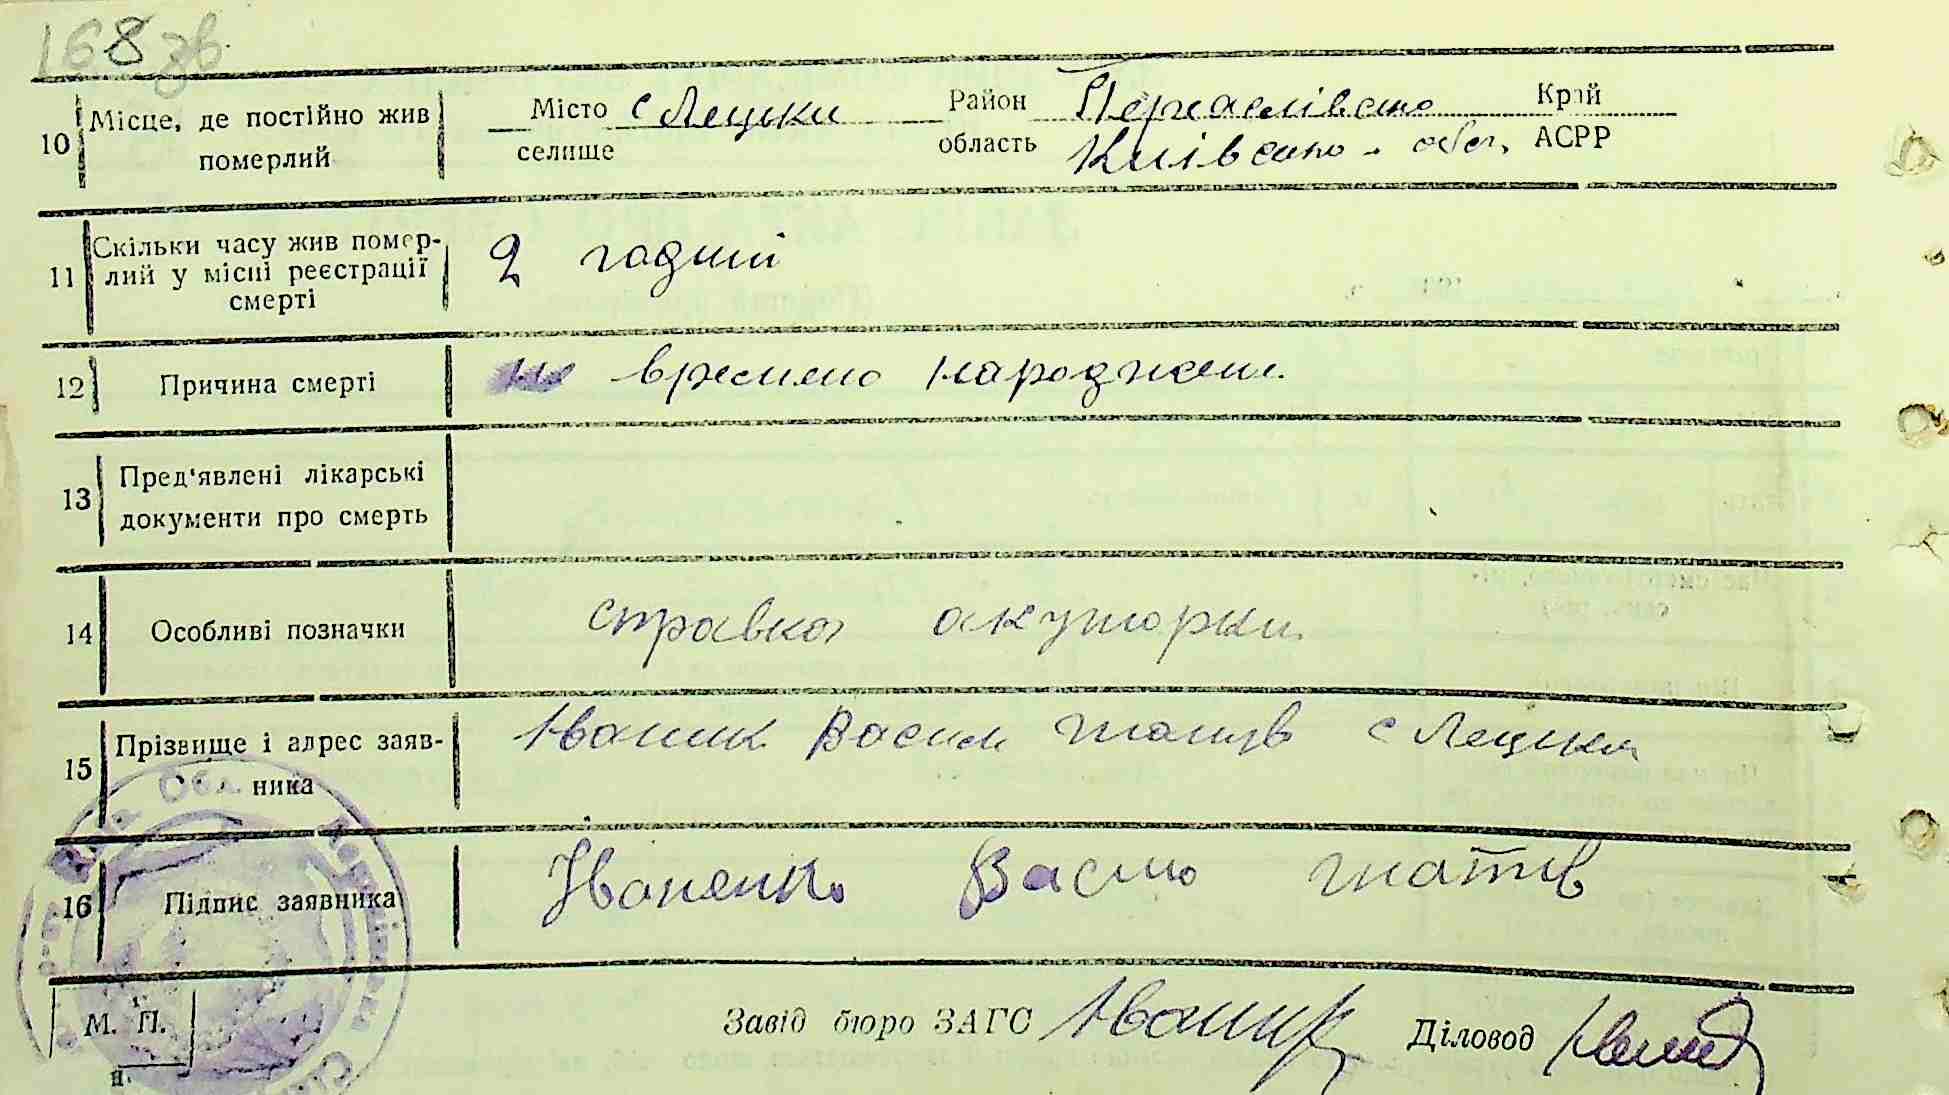 168 зв.
10 Місце, де постійно жив померлий Місто с Лецьки Район Переяслівсько Край
селище область Київсько - обл, АСРР
11 Скільки часу жив помер-
лий у місці реєстрації
смерті 2 години
12 Причина смерті не времено народжени
13 Пред'явлені лікарські
документи про смерть
14 Особливі позначки справка акушорки
15 Прізвище і адрес заяв-
ника Іваник Васил гнатів с Лецьки
16 Підпис заявника Іваненко Васило гнатів
М. П. Завід бюро ЗАГС Іваник Діловод